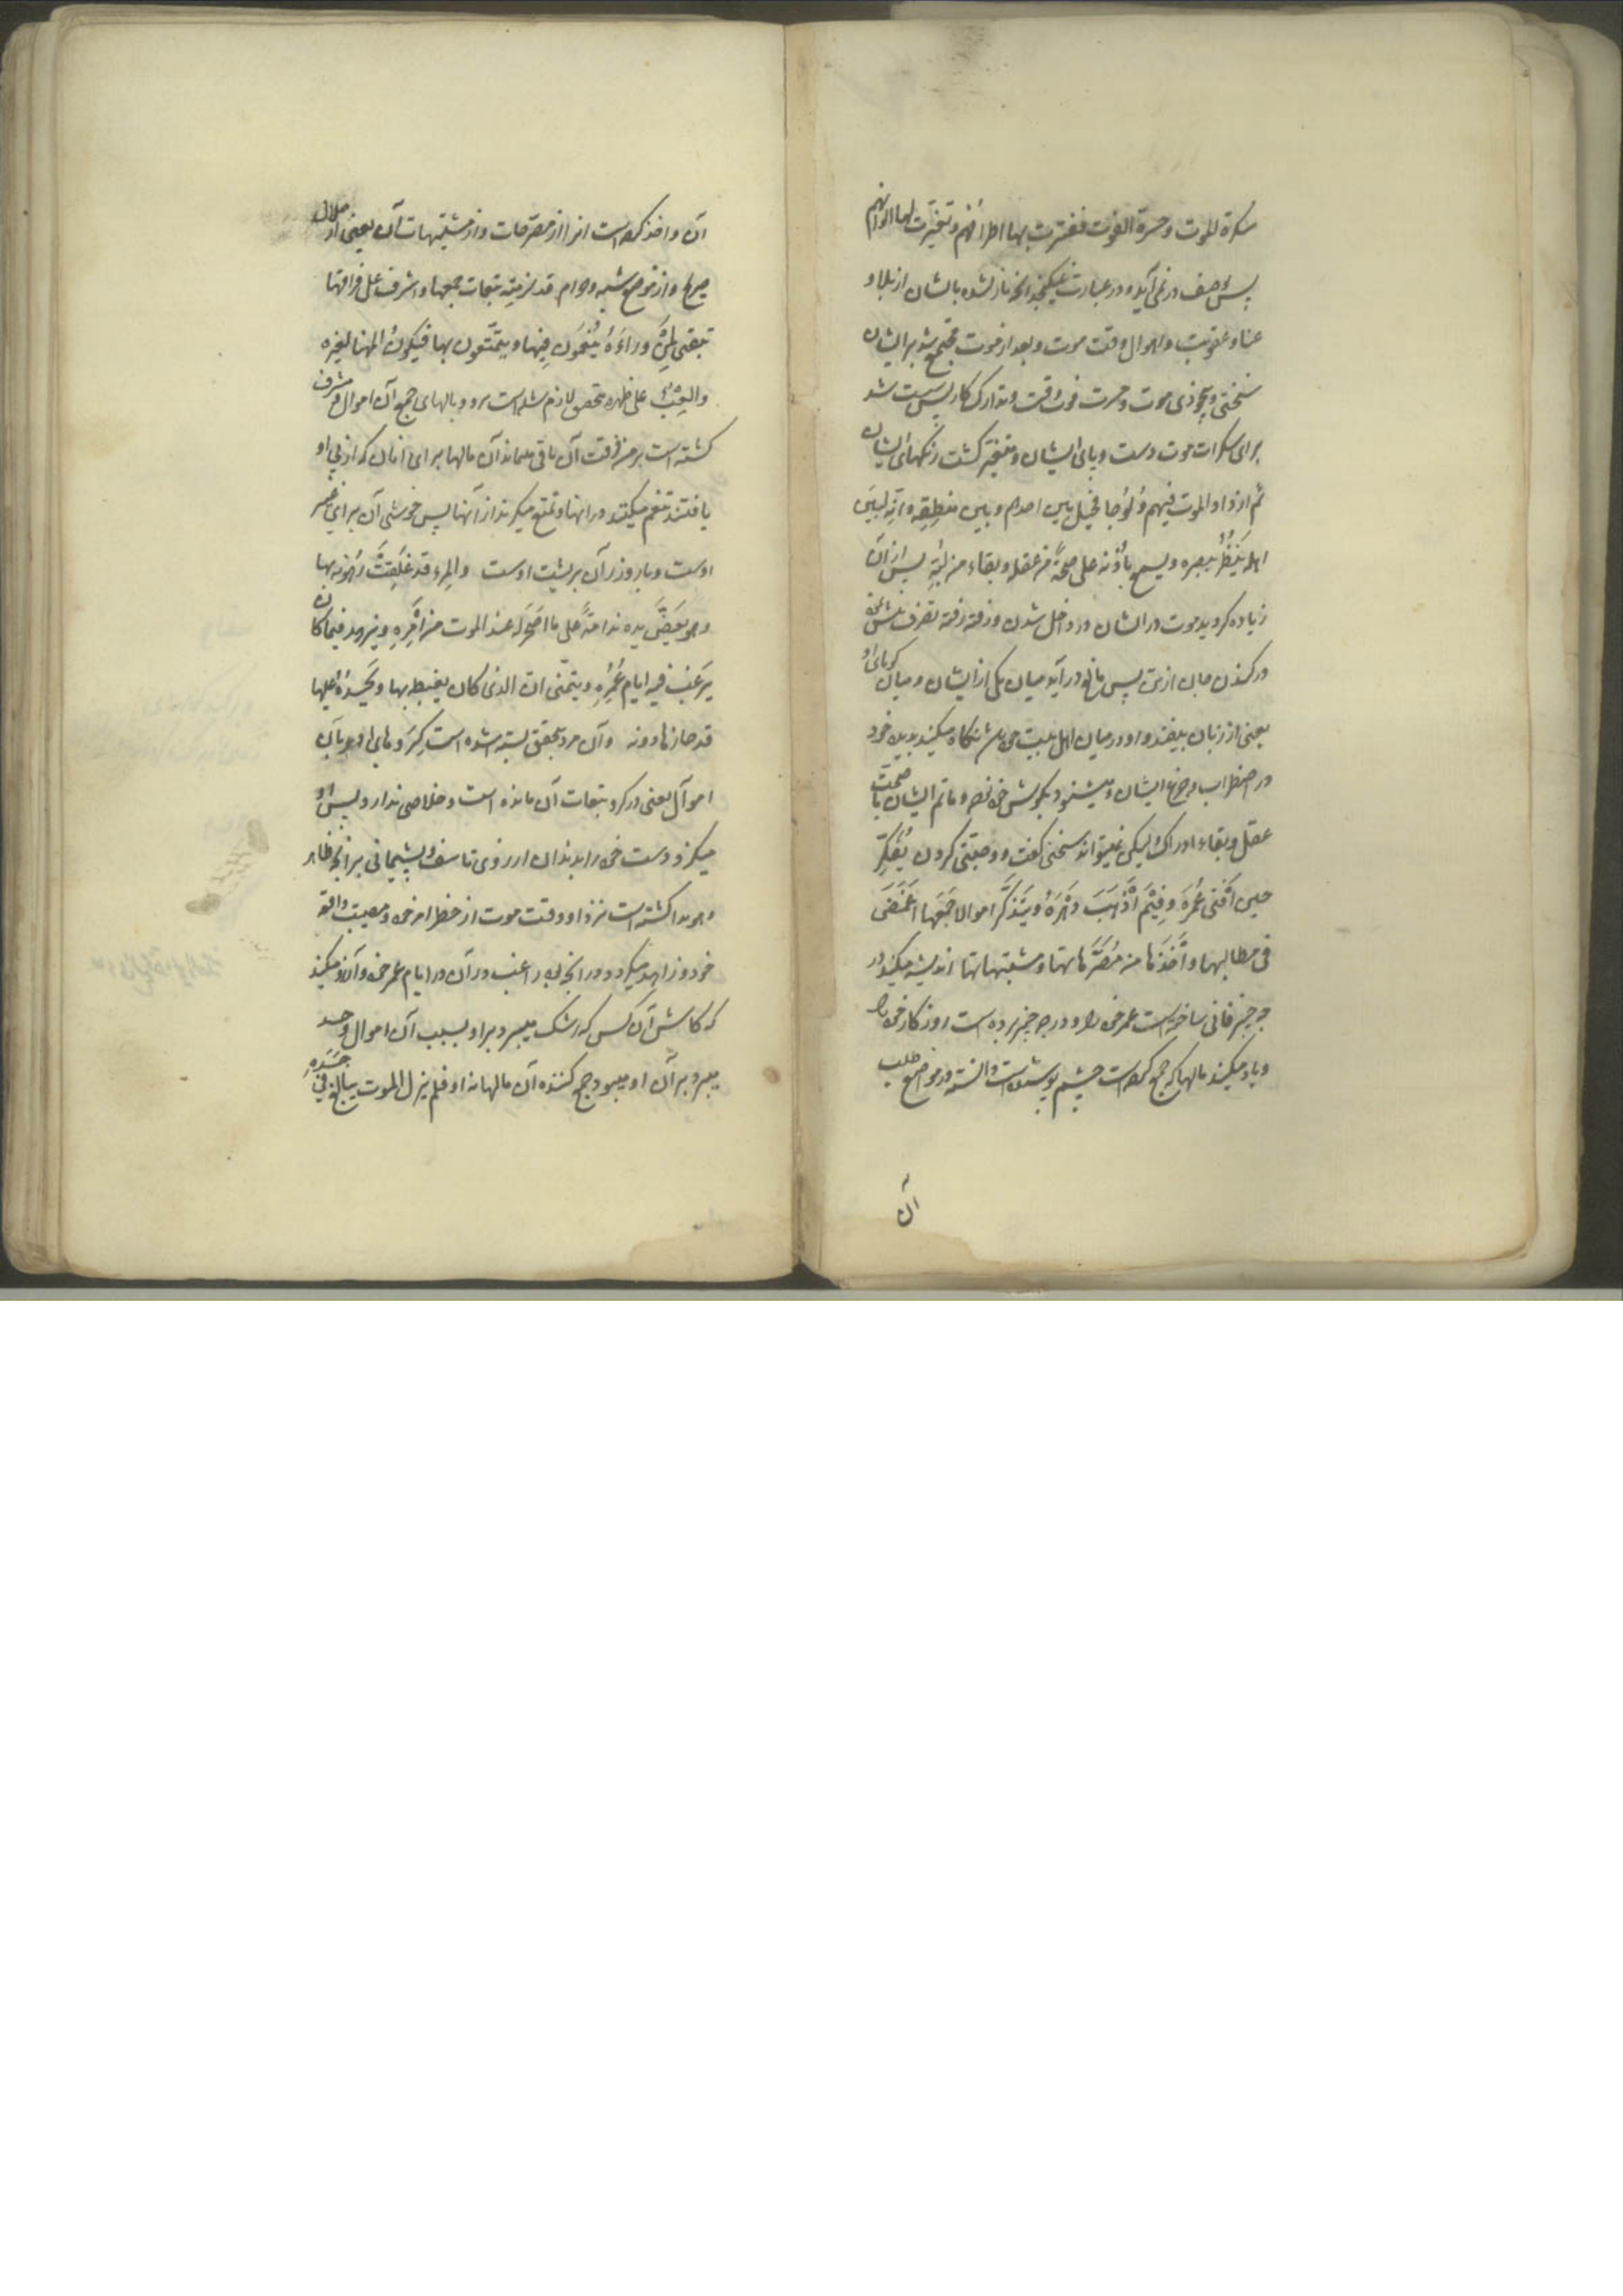 سكرة الموت وحسرة الفوت ففترت بها اطرافهم وتغيرت لها الوانهم
پس وصف در نمی آید و در عبارت نمیگنجد انچه نازل شده بایشان از بلا و
عنا و عقوبت و اهوال وقت موت و بعد از موت مجتمع شد بر ایشان
سختی و بیخودی موت و حسرت فوت وقت و تدارک کار پس سست شد
برای سکرات موت دست و پای ایشان و متغیر کشت رنکهای ایشان
ثم ازداد الموت فيهم ولوجا فحيل بين احدهم وبين منطقه وانه لبين
اهله ينظر ببصره ويسمع باذنه على صحة من عقله وبقاء من لبه پس از آن
زیاده کردید موت در ایشان در داخل شدن و رفته رفته تصرف
در کندن جان از تن پس مانع در آید میان یکی از ایشان و میان کویائی او
یعنی از زبان بیفتد و او در میان اهل بیت خود باشد نکاه میکند بدیده خود
در اضطراب و جزع ایشان و میشنود بکوش خود نوحه و ماتم ایشان با صحت
عقل و بقاء ادراک لیکن نمیتواند سخنی کفت و وصیتی کردن يفكر
حين افنى عمره وفيم اذهب دهره ويتذكر اموالا جمعها اغمض
فى مطالبها واخذها من مصرحاتها ومشتبهاتها اندیشه میکند در
چه چیز فانی ساخته است عمر خود را و در چه چیز برده است روزکار خود را
و یاد میکند مالها که جمع کرده است چشم پوشیده است دانسته در مواضع طلب
آن
آن و اخذ کرده است انرا از مصرحات و از مشتبهات آن یعنی از حلال
صریح و از موضع شبهه و حرام قد لزمته تبعات جمعها واشرف على فراقها
تبقى لمن وراءه ينعمون فيها ويتمتعون بها فيكون المهنا لغيره
والعبء على ظهره بتحقیق لازم شده است برو وبالهای جمع آن اموال و مشرف
کشته است بر مفارقت آن باقی میماند آن مالها برای انان که از پی او
یافتند تنعم میکنند در انها و تمتع میکیرند از آنها پس خوشی آن برای غیر
اوست و بار وزر آن بر پشت اوست والمرء قد غلقت رهونه بها
وهو يعض يده ندامة على ما اصحر له عند الموت من امره ويزهد فيما كان
يرغب فيه ايام عمره ويتمنى ان الذى كان يغبطه بها ويحسده عليها
قد حازها دونه و آن مرد بتحقیق بسته شده است کروهای او بآن
اموال یعنی در کرو تبعات آن مانده است و خلاصی ندارد پس او
میکزد دست خود را بدندان از روی تاسف و پشیمانی بر انچه ظاهر
و هویدا کشته است نزد او وقت موت از خطر امر خود و مصیبت واقعه
خود و زاهد میکردد در انچه بود راغب در آن در ایام عمر خود و آرزو میکند
که کاش آن کس که رشک میبرد بر او بسبب آن اموال و حسد
میبرد بر آن او میبود جمع کننده آن مالها نه او فلم يزل الموت يبالغ فى جسده